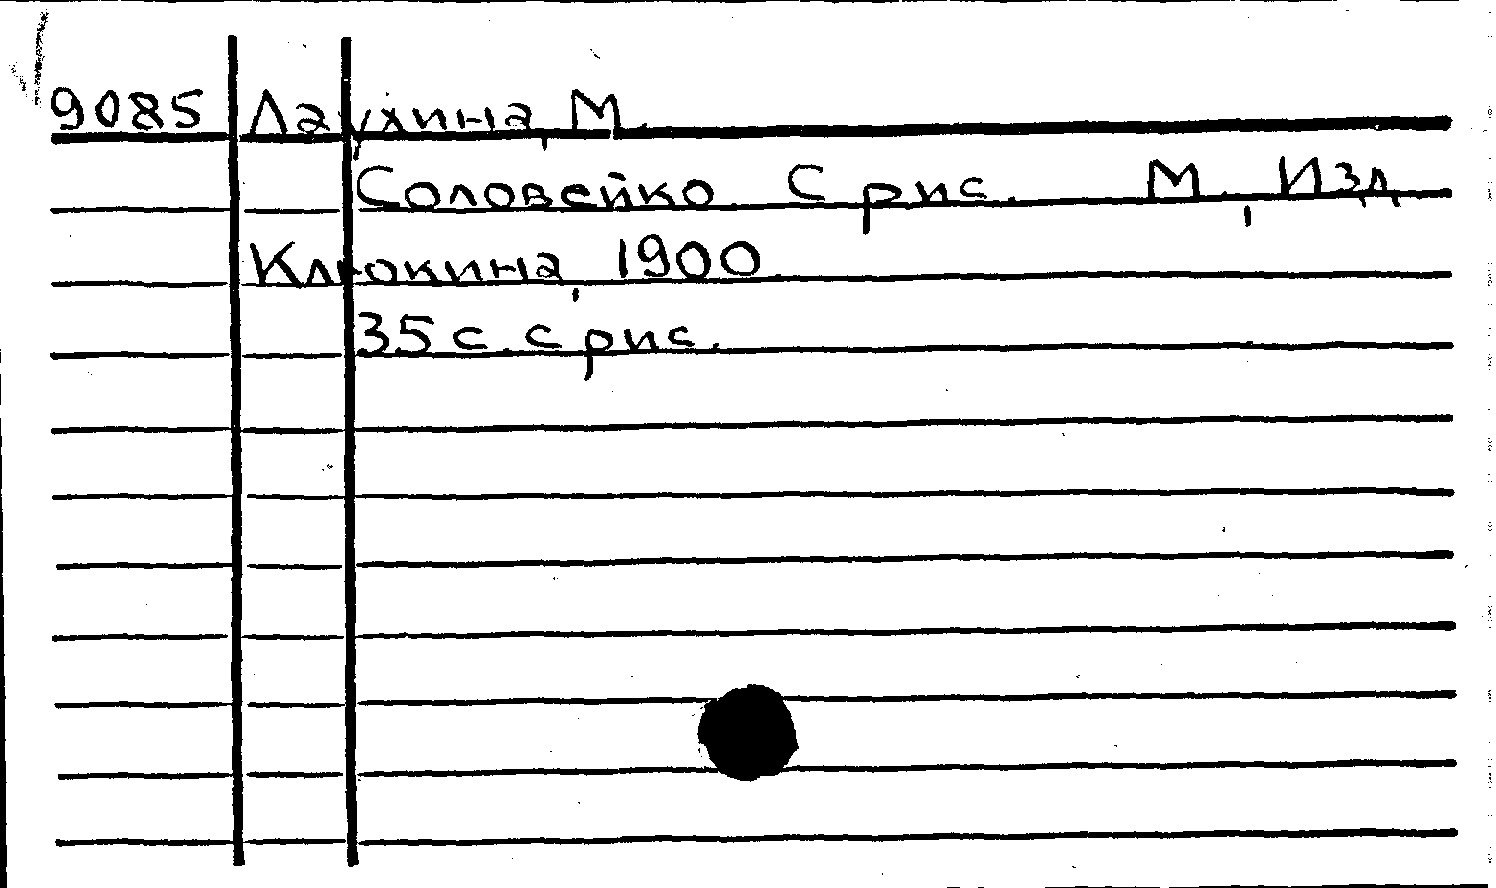 9085 Лаухина, М.
Соловейко. С рис. М., Изд.
Клюкина, 1900.
35 с. с рис.